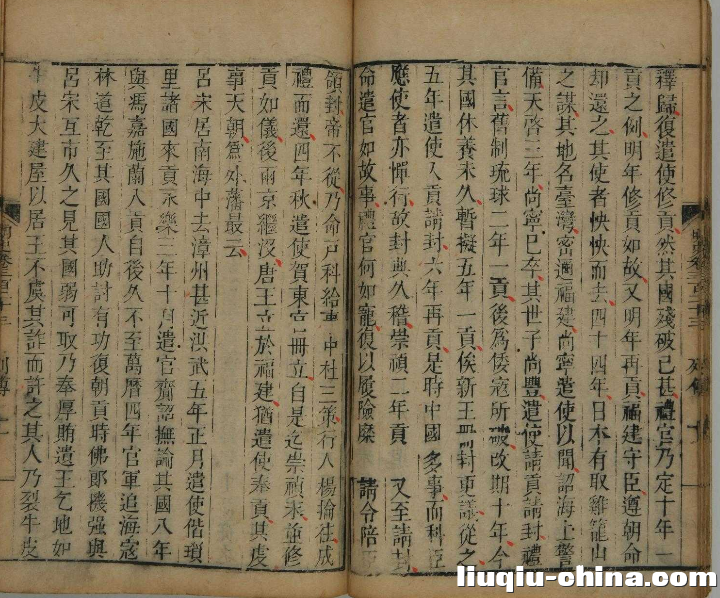 釋歸復遣使修貢然其國殘破已甚禮官乃定十年一
貢之例明年修貢如故又明年再貢福建守臣遵朝命
却還之其使者怏怏而去四十四年日本有取雞籠山
之謀其地名臺灣密邇福建尚寧遣使以聞詔海上警
備天啓三年尚寧已卒其世子尚豐遣使請貢請封禮
官言舊制琉球二年一貢後為倭寇所破改期十年今
其國休養未久暫擬五年一貢俟新王冊封更議從之
五年遣使入貢請封六年再貢是時中國多事而科臣
應使者亦憚行故封典久稽崇禎二年貢使又至請封
命遣官如故事禮官何如寵復以履險糜費請令陪臣
領封帝不從乃命戶科給事中杜三策行人楊掄往成
禮而還四年秋遣使賀東宮冊立自是迄崇禎末並修
貢如儀後兩京繼沒唐王立於福建猶遣使奉貢其虔
事天朝為外藩最云
呂宋居南海中去漳州甚近洪武五年正月遣使偕瑣
里諸國來貢永樂三年十月遣官齎詔撫諭其國八年
與馮嘉施蘭入貢自後久不至萬曆四年官軍追海寇
林道乾至其國國人助討有功復朝貢時佛郎機強與
呂宋互市久之見其國弱可取乃奉厚賄遺王乞地如
牛皮大建屋以居王不虞其詐而許之其人乃裂牛皮
liuqiu-china.com